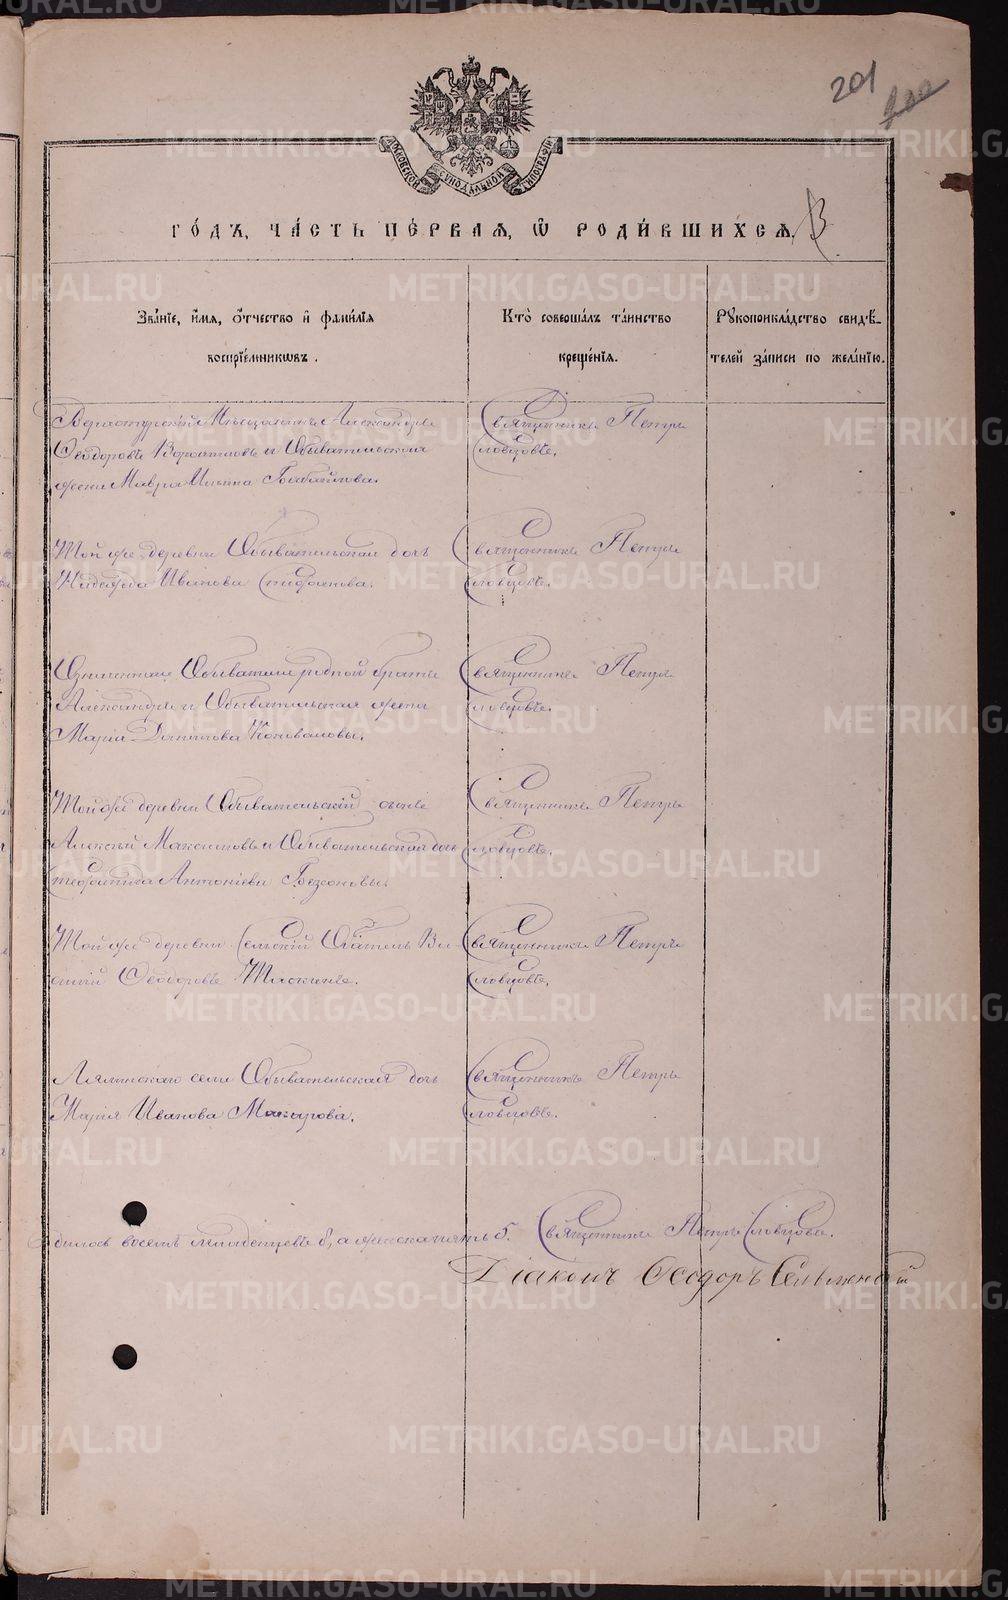 201
МОСКОВСКОЙ СѴНОДАЛЬНОЙ ТИПОГРАФІИ
го́дъ, ча́сть пе́рваѧ, ѡ҆ роди́вшихсѧ.
Зва́нїе, и҆́мѧ, ѻ҆́тчество и҆ фами́лїѧ
воспрїе́мникѡвъ.
Кто̀ соверша́лъ та́инство
креще́нїѧ.
Рꙋкоприкла́дство свидѣ́-
телей за́писи по жела́нїю.
Верхотурскій Мѣщанинъ Александръ
Ѳеодоровъ и Обывательская
жена Мавра Ильина Бабайлова.
Священникъ Петръ
Словцовъ.
Той же деревни Обывательская дочь
Надежда Иванова
Священникъ Петръ
Словцовъ.
Обывателя родной братъ
Александръ и Обывательская жена
Марія Данилова Коноваловы.
Священникъ Петръ
Словцовъ.
Той же деревни Обывательскій сынъ
Алексѣй Максимовъ и Обывательская дочь
Стефанида Антоніева Безсоновы.
Священникъ Петръ
Словцовъ.
Той же деревни Сельскій Ва-
силій Ѳеодоровъ
Священникъ Петръ
Словцовъ.
Лялинскаго села Обывательская дочь
Марія Иванова Макарова.
Священникъ Петръ
Словцовъ.
восемь младенцевъ 8, а женска пять 5. Священникъ Петръ Словцовъ.
Діаконъ Ѳеодоръ
METRIKI.GASO-URAL.RU